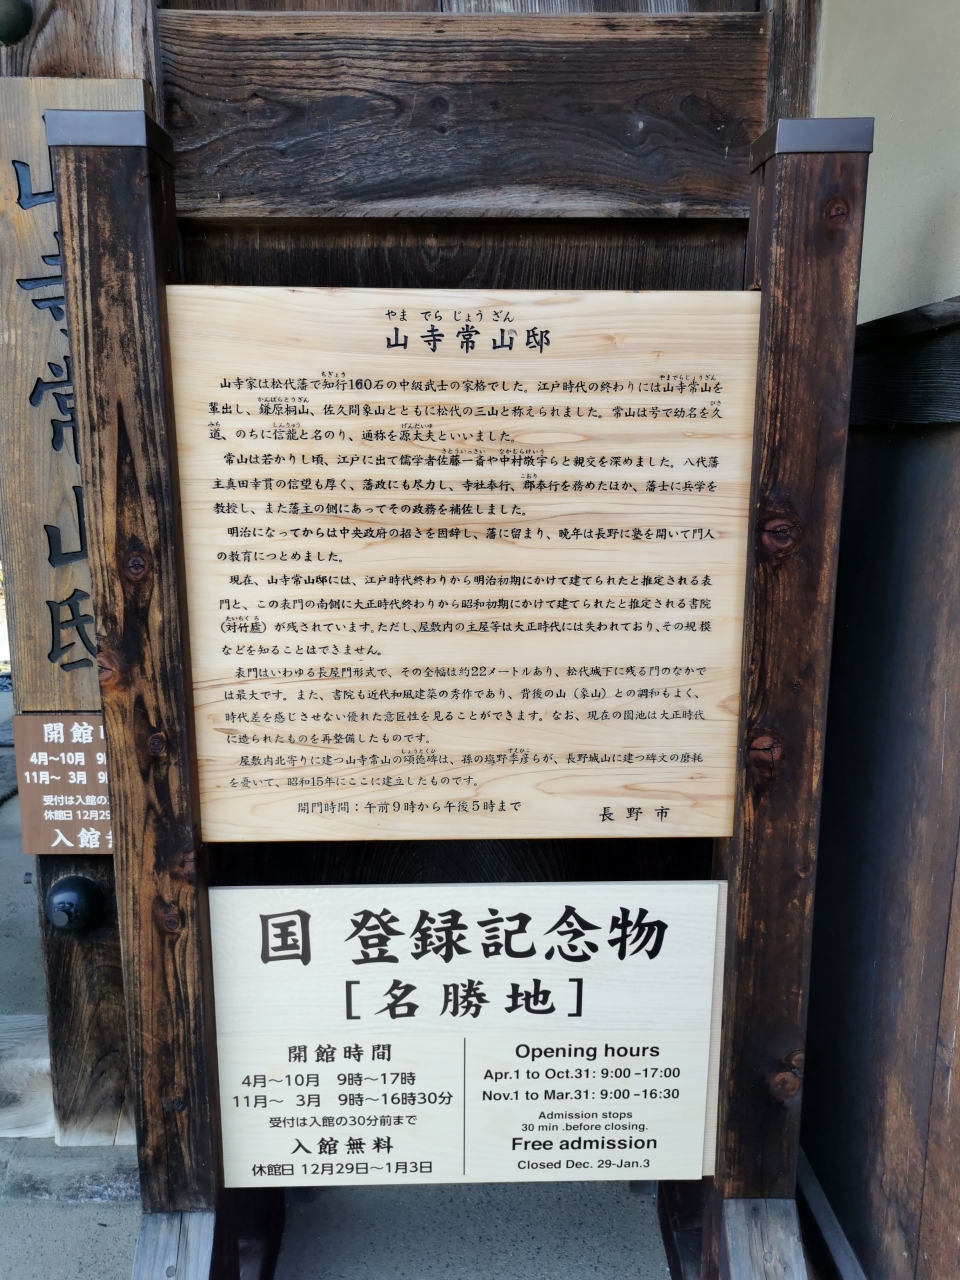 やま でら じょう ざん
山寺常山邸
山寺家は松代藩で知行160石の中級武士の家格でした。江戸時代の終わりには山寺常山を
輩出し、鎌原桐山、佐久間象山とともに松代の三山と称えられました。常山は号で幼名を久
道、のちに信龍と名のり、通称を源太夫といいました。
常山は若かりし頃、江戸に出て儒学者佐藤一斎や中村敬宇らと親交を深めました。八代藩
主真田幸貫の信望も厚く、藩政にも尽力し、寺社奉行、郡奉行を務めたほか、藩士に兵学を
教授し、また藩主の側にあってその政務を補佐しました。
明治になってからは中央政府の招きを固辞し、藩に留まり、晩年は長野に塾を開いて門人
の教育につとめました。
現在、山寺常山邸には、江戸時代終わりから明治初期にかけて建てられたと推定される表
門と、この表門の南側に大正時代終わりから昭和初期にかけて建てられたと推定される書院
(対竹廬)が残されています。ただし、屋敷内の主屋等は大正時代には失われており、その規模
などを知ることはできません。
表門はいわゆる長屋門形式で、その全幅は約22メートルあり、松代城下に残る門のなかで
は最大です。また、書院も近代和風建築の秀作であり、背後の山(象山)との調和もよく、
時代差を感じさせない優れた意匠性を見ることができます。なお、現在の園池は大正時代
に造られたものを再整備したものです。
屋敷内北寄りに建つ山寺常山の頌徳碑は、孫の塩野季彦らが、長野城山に建つ碑文の磨耗
を憂いて、昭和15年にここに建立したものです。
開門時間：午前9時から午後5時まで
長野市
国 登録記念物
[名勝地]
開館時間
4月〜10月 9時〜17時
11月〜 3月 9時〜16時30分
受付は入館の30分前まで
入館無料
休館日 12月29日〜1月3日
Opening hours
Apr.1 to Oct.31: 9:00-17:00
Nov.1 to Mar.31: 9:00-16:30
Admission stops
30 min .before closing.
Free admission
Closed Dec. 29-Jan.3
山寺常山邸
開館
4月〜10月
11月〜 3月
受付は入館の
休館日 12月29
入館